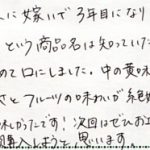 に嫁いで3年目になり
という商品名は知っていた
めて口にしました。中の黄味
さとフルーツの味わいが絶妙
味しかったです！次回はぜひお土
購入しようと思います。